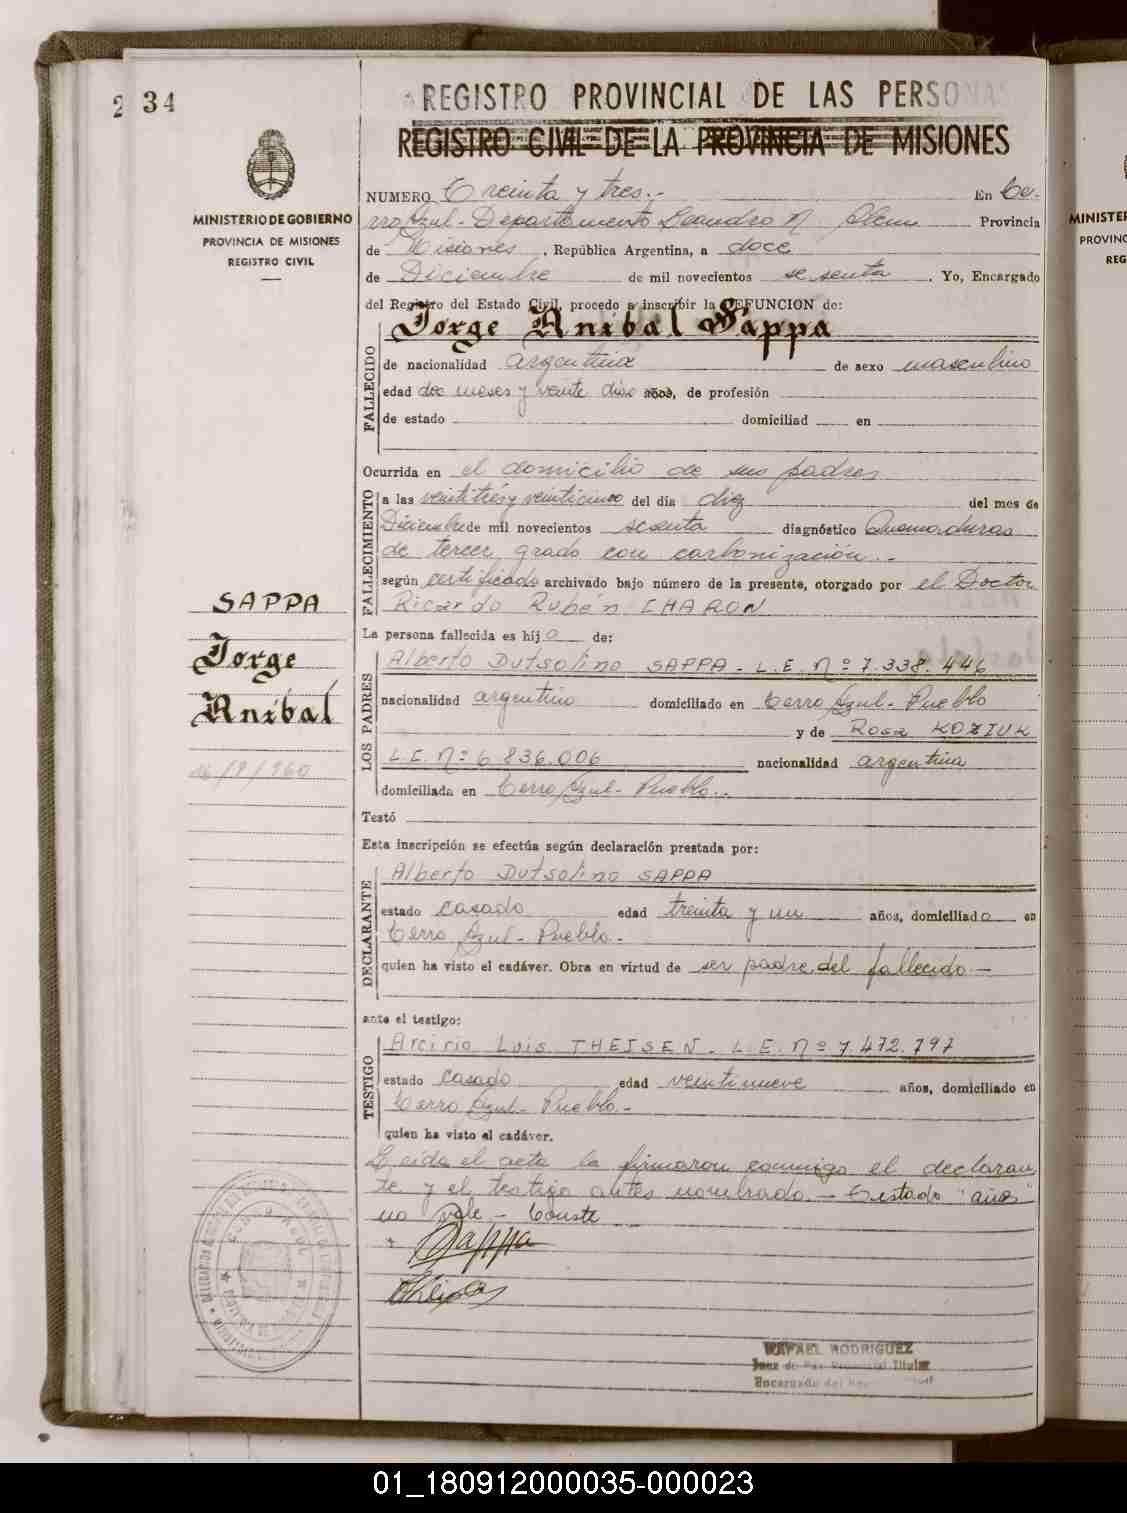 34
REGISTRO PROVINCIAL DE LAS PERSONAS
REGISTRO CIVIL DE LA PROVINCIA DE MISIONES
MINISTERIO DE GOBIERNO
PROVINCIA DE MISIONES
REGISTRO CIVIL
NUMERO Treinta y tres.- En Ce-
rro Azul - Departamento Leandro N. Alem Provincia
de Misiones, República Argentina, a doce
de Diciembre de mil novecientos sesenta. Yo, Encargado
del Registro del Estado Civil, procedo a inscribir la DEFUNCION de:
Jorge Anibal Sappa
FALLECIDO
de nacionalidad argentina de sexo masculino
edad dos meses y veinte dias años, de profesión
de estado domiciliad en
Ocurrida en el domicilio de sus padres
FALLECIMIENTO
a las veintitres y veinticinco del día diez del mes de
Diciembre de mil novecientos sesenta diagnóstico Quemaduras
de tercer grado con carbonización.-
según certificado archivado bajo número de la presente, otorgado por el Doctor
Ricardo Rubén CHARON
SAPPA
Jorge
Anibal
La persona fallecida es hijo de:
LOS PADRES
Alberto Dutsolino SAPPA - L.E. Nº 7.338.446
nacionalidad argentino domiciliado en Cerro Azul - Pueblo
y de Rosa KOZIUK
L.E. Nº 6.836.006 nacionalidad argentina
domiciliada en Cerro Azul - Pueblo.-
Testó
Esta inscripción se efectúa según declaración prestada por:
DECLARANTE
Alberto Dutsolino SAPPA
estado casado edad treinta y un años, domiciliado en
Cerro Azul - Pueblo -
quien ha visto el cadáver. Obra en virtud de ser padre del fallecido.-
ante el testigo:
TESTIGO
Arcirio Luis THEISEN - L.E. Nº 7.472.797
estado casado edad veintinueve años, domiciliado en
Cerro Azul - Pueblo -
quien ha visto el cadáver.
Leida el acta la firmaron conmigo el declaran
te y el testigo antes nombrado.- Testado "años"
no vale - Conste
Sappa
RAFAEL RODRIGUEZ
Juez de Paz Provincial Titular
Encargado del
MINISTER
PROVINC
REG
01_180912000035-000023